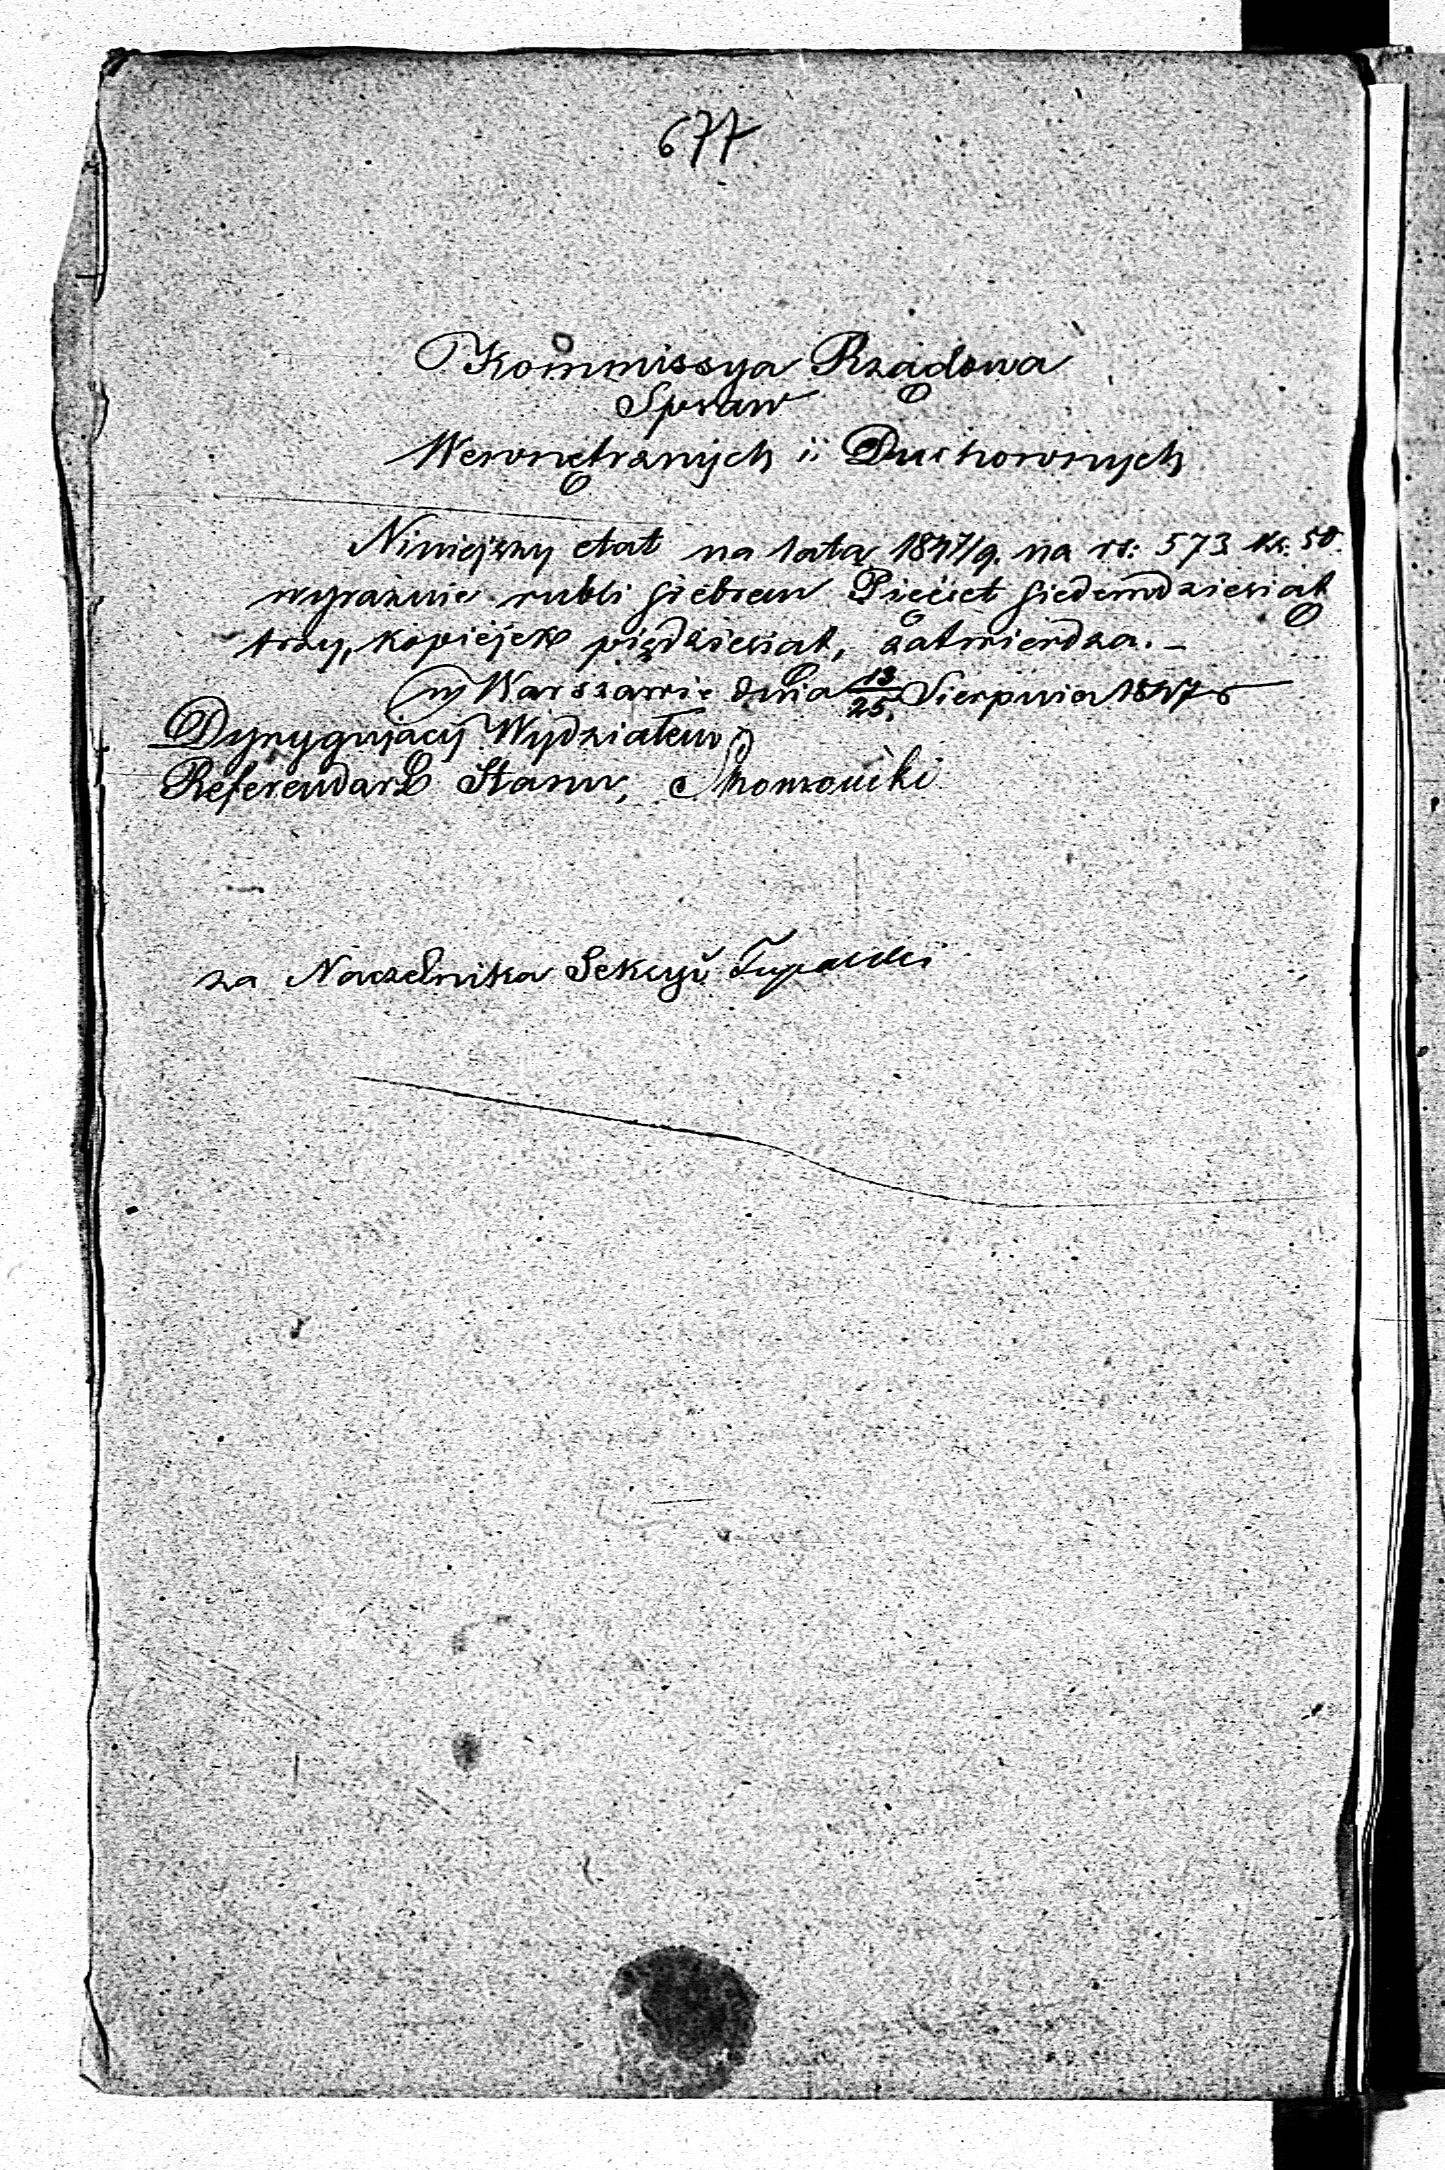 677.
Kommissya Rządowa
Spraw
Wewnętrznych i Duchownych
Niniejszy etat na lata 1847/9. na rs: 573 kr. 50.
wyraźnie rubli srebrem Pięćset siedemdziesiąt
trzy, kopiejek pięćdziesiąt, zatwierdza. –
w Warszawie dnia 13/25. Sierpnia 1847 r
Dyrygujący Wydziałem
Referendarz Stanu,
za Naczelnika Sekcyi